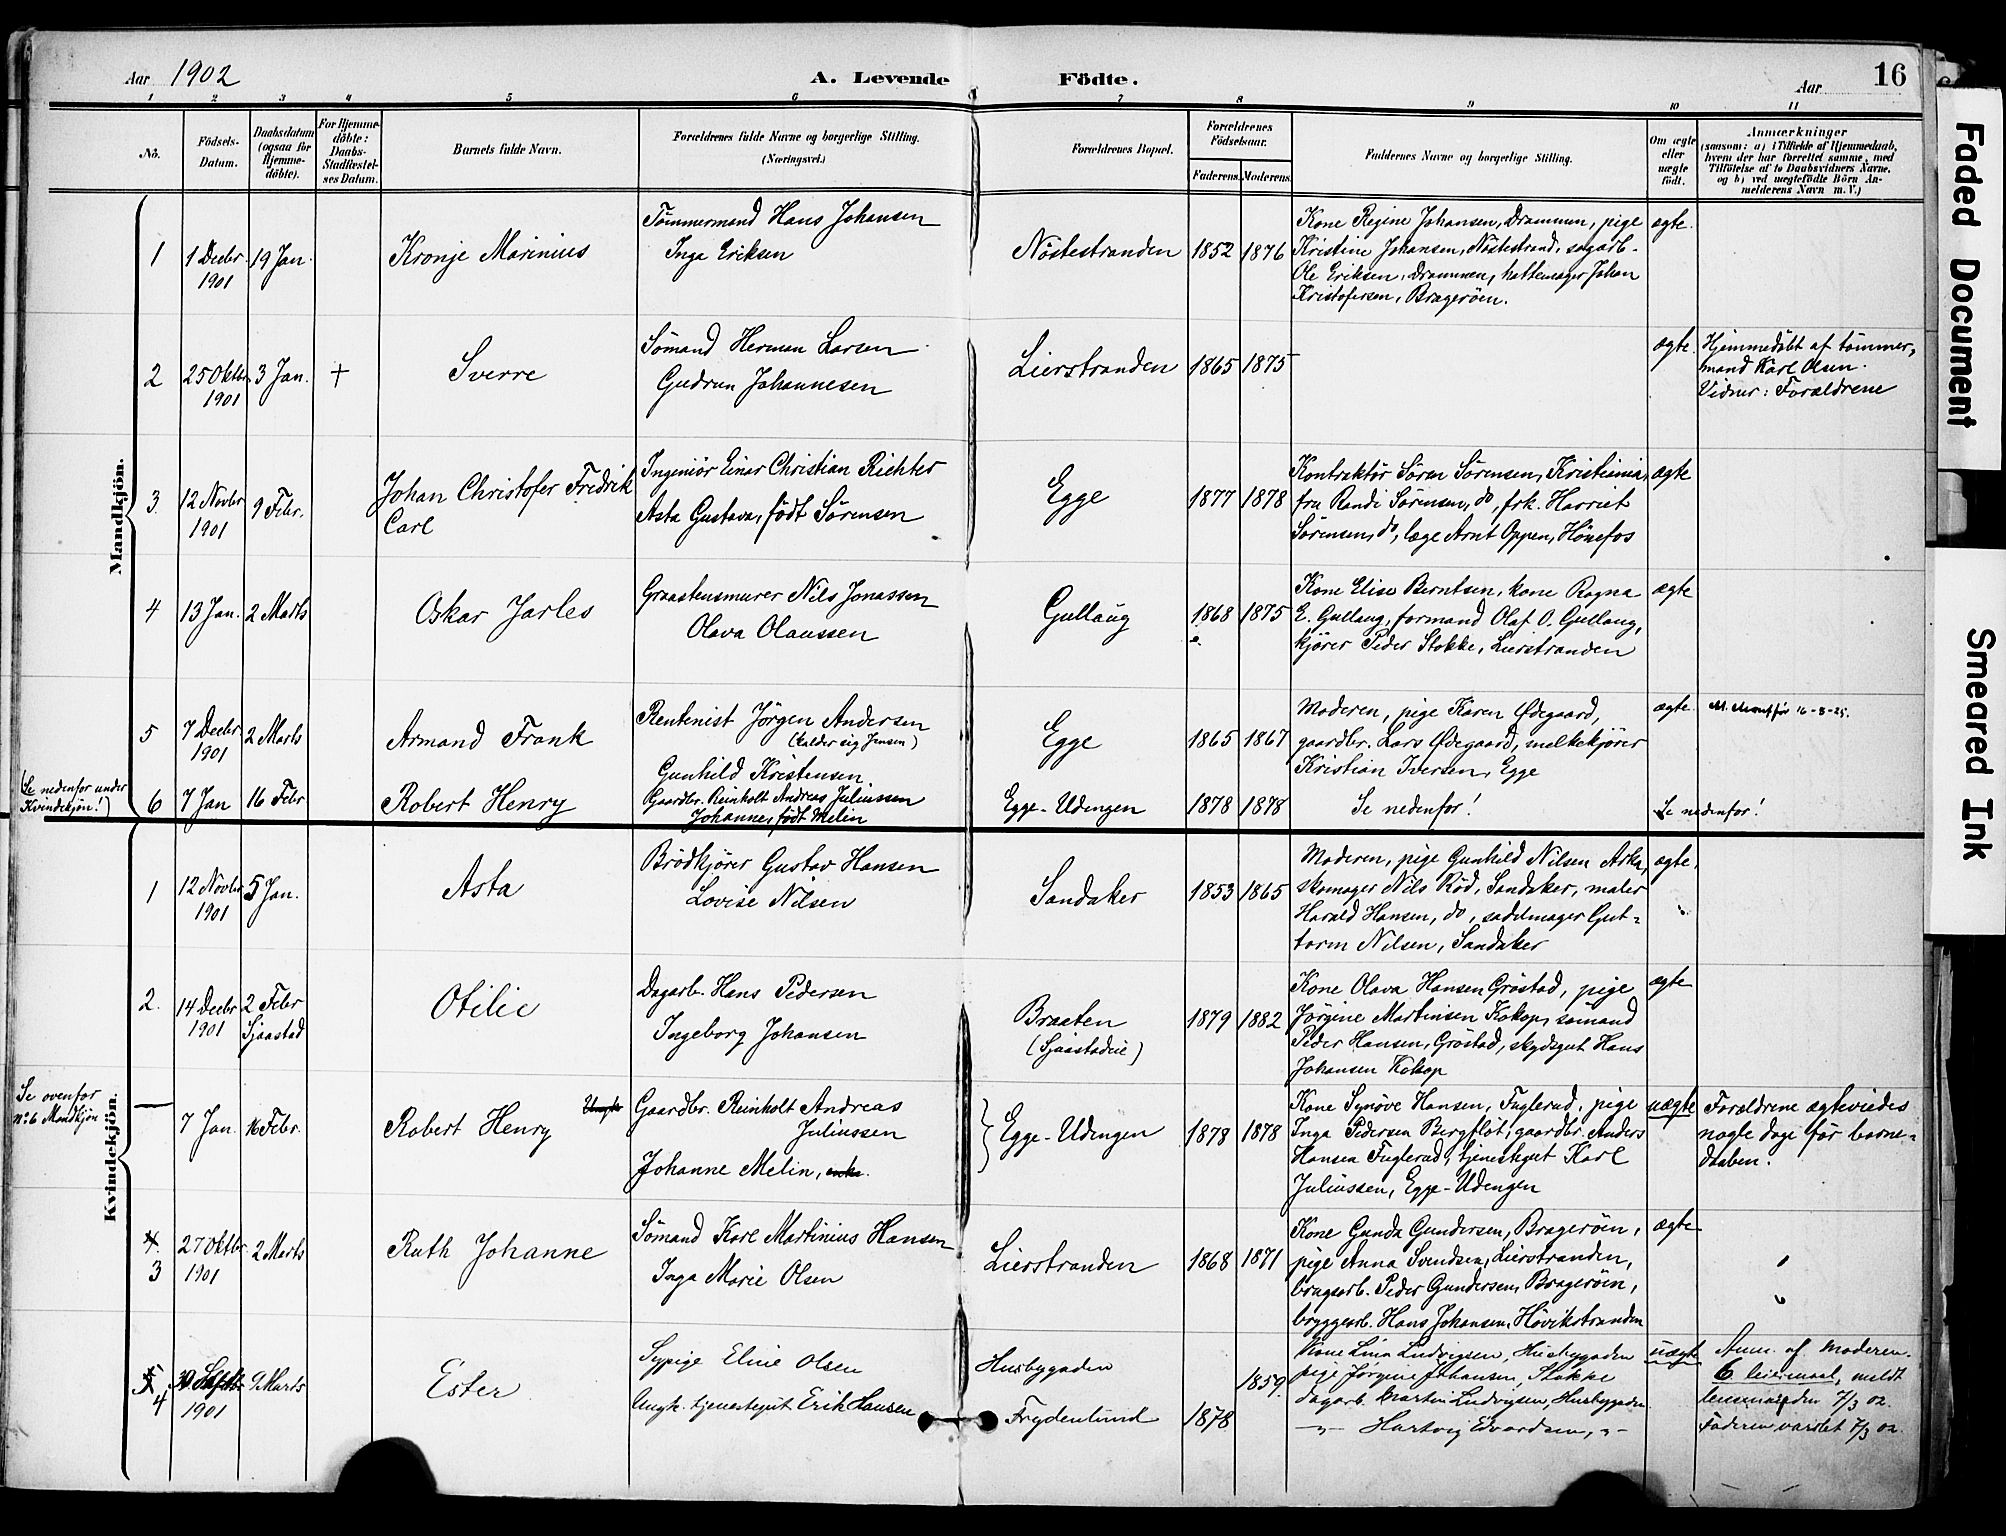 Aar 1902
A. Levende Födte.
Aar
16
1 2 3 4 5 6 7 8 9 10 11
No.
Födsels-
Datum.
Daabsdatum
(ogsaa for
Hjemme-
döbte).
For Hjemme-
döbte:
Daabs-
Stadfæstel-
ses Datum.
Barnets fulde Navn.
Forældrenes fulde Navne og borgerlige Stilling.
(Næringsvei.)
Forældrenes Bopæl.
Forældrenes
Födselsaar.
Faderens. Moderens.
Faddernes Navne og borgerlige Stilling.
Om ægte
eller
uægte
födt.
Anmærkninger
(saasom: a) i Tilfælde af Hjemmedaab,
hvem der har forrettet samme, med
Tilföielse af to Daabsvidners Navne.
og b) ved uægtefödte Börn An-
melderens Navn m. V.)
Mandkjön.
1
1 Decbr
1901
19 Jan.
Kronje Marinius
Tömmermand Hans Johansen
Inga Eriksen
Nöstestranden
1852 1876
Kone Regine Johansen, Drammen, pige
Kristine Johansen, Nöstestrand, sagarb.
Ole Eriksen, Drammen, hattemager Johan
Kristofersen, Bragerøen.
ægte.
2
25 Oktbr
1901
3 Jan.
+
Sverre
Sömand Herman Larsen
Gudrun Johannesen
Lierstranden
1865 1875
ægte.
Hjemmedöbt af tömmer-
mand Karl Olsen.
Vidner: Forældrene
3.
12 Novbr
1901
9 Febr.
Johan Christofer Fredrik
Carl
Ingeniör Einar Christian Richter
Asta Gustava, født Sørensen
Egge
1877 1878
Kontraktør Søren Sørensen, Kristiania,
fru Randi Sørensen, do, frk. Harriet
Sørensen, do, læge Arnt Oppen, Hönefos
ægte
4
13 Jan.
2 Marts
Oskar Jarles
Graastensmurer Nils Jonassen
Olava Olaussen
Gullaug
1868 1875
Kone Elise Berntsen, kone Ragna
E. Gullaug, formand Olaf O. Gullaug,
kjører Peder Stokke, Lierstranden
ægte
5
7 Decbr
1901
2 Marts
Armand Frank
Rentenist Jörgen Andersen
(kalder sig Jensen)
Gunhild Kristensen
Egge
1865 1867
Moderen, pige Karen Ødegaard,
gaardbr. Lars Ødegaard, melkekjører
Kristian Iversen, Egge
ægte.
16-3-25.
(Se nedenfor under
Kvindekjön!)
6
7 Jan
16 Febr
Robert Henry
Gaardbr. Reinholt Andreas Juliussen
Johanne, født Melin
Egge-Udengen
1878 1878
Se nedenfor!
Se nedenfor!
Kvindekjön.
1
12 Novbr
1901
5 Jan.
Asta
Brödkjörer Gustav Hansen
Lovise Nilsen
Sandaker
1853 1865
Moderen, pige Gunhild Nilsen Aska,
skomager Nils Röd, Sandaker, maler
Harald Hansen, do, sadelmager Gut-
torm Nilsen, Sandaker
ægte.
2.
14 Decbr
1901
2 Febr
Sjaastad
Otilie
Dagarb. Hans Pedersen
Ingeborg Johansen
Braaten
(Sjaastadeie)
1879 1882
Kone Olava Hansen Gröstad, pige
Jörgine Martinsen Kokop, sömand
Peder Hansen, Gröstad, skydsgut Hans
Johansen Kokop
ægte
Se ovenfor
No 6 Mandkjön
7 Jan.
16 Febr.
Robert Henry
Gaardbr. Reinholt Andreas
Juliussen
Johanne Melin,
Egge-Udengen
1878 1878
Kone Synöve Hansen, Fuglerud, pige
Inga Pedersen Bergflöt, gaardbr. Anders
Hansen Fuglerud, tjenestegut Karl
Juliussen, Egge-Udengen
uægte
Forældrene ægteviedes
nogle dage før barne-
daaben.
4.
3
27 Oktbr.
1901
2 Marts
Ruth Johanne
Sömand Karl Martinius Hansen
Inga Marie Olsen
Lierstranden
1868 1871
Kone Gunda Gundersen, Bragerøen,
pige Anna Svendsen, Lierstranden,
brugsarb. Peder Gundersen, Bragerøen,
bryggearb. Hans Johansen, Hövikstranden
ægte
5
4
1901
9 Marts
Ester
Sypige Eline Olsen
Ungk. tjenestegut Erik Hansen
Husbygaden
Frydenlund
1859.
1878
Kone Lina Ludvigsen, Husbygaden
pige Jörgine Johansen, Stokke
dagarb. Martin Ludvigsen, Husbygaden
-"- Hartvig Edvardsen, -"-
uægte
Anm. af moderen.
6 leiermaal, meldt
7/3 02.
Faderen varslet 7/3 02.
Faded Document
Smeared Ink